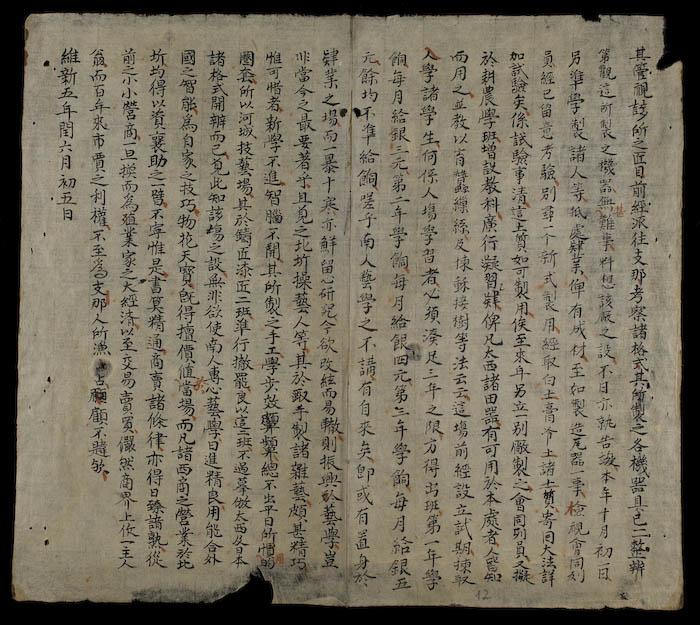 其管視諒所之匠目前經派往支那考察諸格式其所製之各機器具已一整辨
第觀這所製之機器無難葉料想該廠之設不日亦就告竣本年十月初一日
另準學製諸人等抵處肄業俾有成材至如製造尾器一事檢視會同列
員經已留意考驗別尋一個新式製用經取白土膏冷土諸土質寄回大法詳
加試驗矣係試驗事清這土質如可製用俟至來年另立別廠製之會同列員又擬
於耕農學班增設教科廣行凝習肄俾凡太西諸田器有可用於本處者人皆知
而用之並教以育蠶繅絲及揀穌接樹等法云云這場前經設立試期揀取
入學諸學生何係人塲學習者必須湊足三年之限方得出班第一年學
餉每月給銀三元第二年學餉每月給銀四元第三年學餉每月給銀五
元餘均不準給餉嗟乎南人藝學之不講有自來矣即或有置身於
肄業之場而一暴十寒亦鮮留心研究今欲改絃而易轍則振興於藝學豈
非當今之最要著乎且覓之北圻操藝人等其於敢手製諸雜藝頗甚精巧
惟可惜者新學不進智腦不開其所製之手工學步效顰類總不出平日所慣的
圈套所以河城技藝場其於鑄匠漆匠二班準行撤罷良以這二班不過摹倣太西及日本
諸格式開辨而已覓此知該塲之設無非欲使南人專心藝學日進精良用能合外
國之智能為自家之技巧物花天寶旣得擅價值當場而凡諸西商之營業於北
圻均得以資襄助之一臂不寧惟是書莫精通商賣諸條律亦得日臻諸熟從
前之小小營商一旦換而為殖業家之大經濟以至交易賣買儼然商界上使一主人
翁而百年來市賈之利權不至為支那人所漁占願顧不韙歟
維新五年閏六月初五日
12